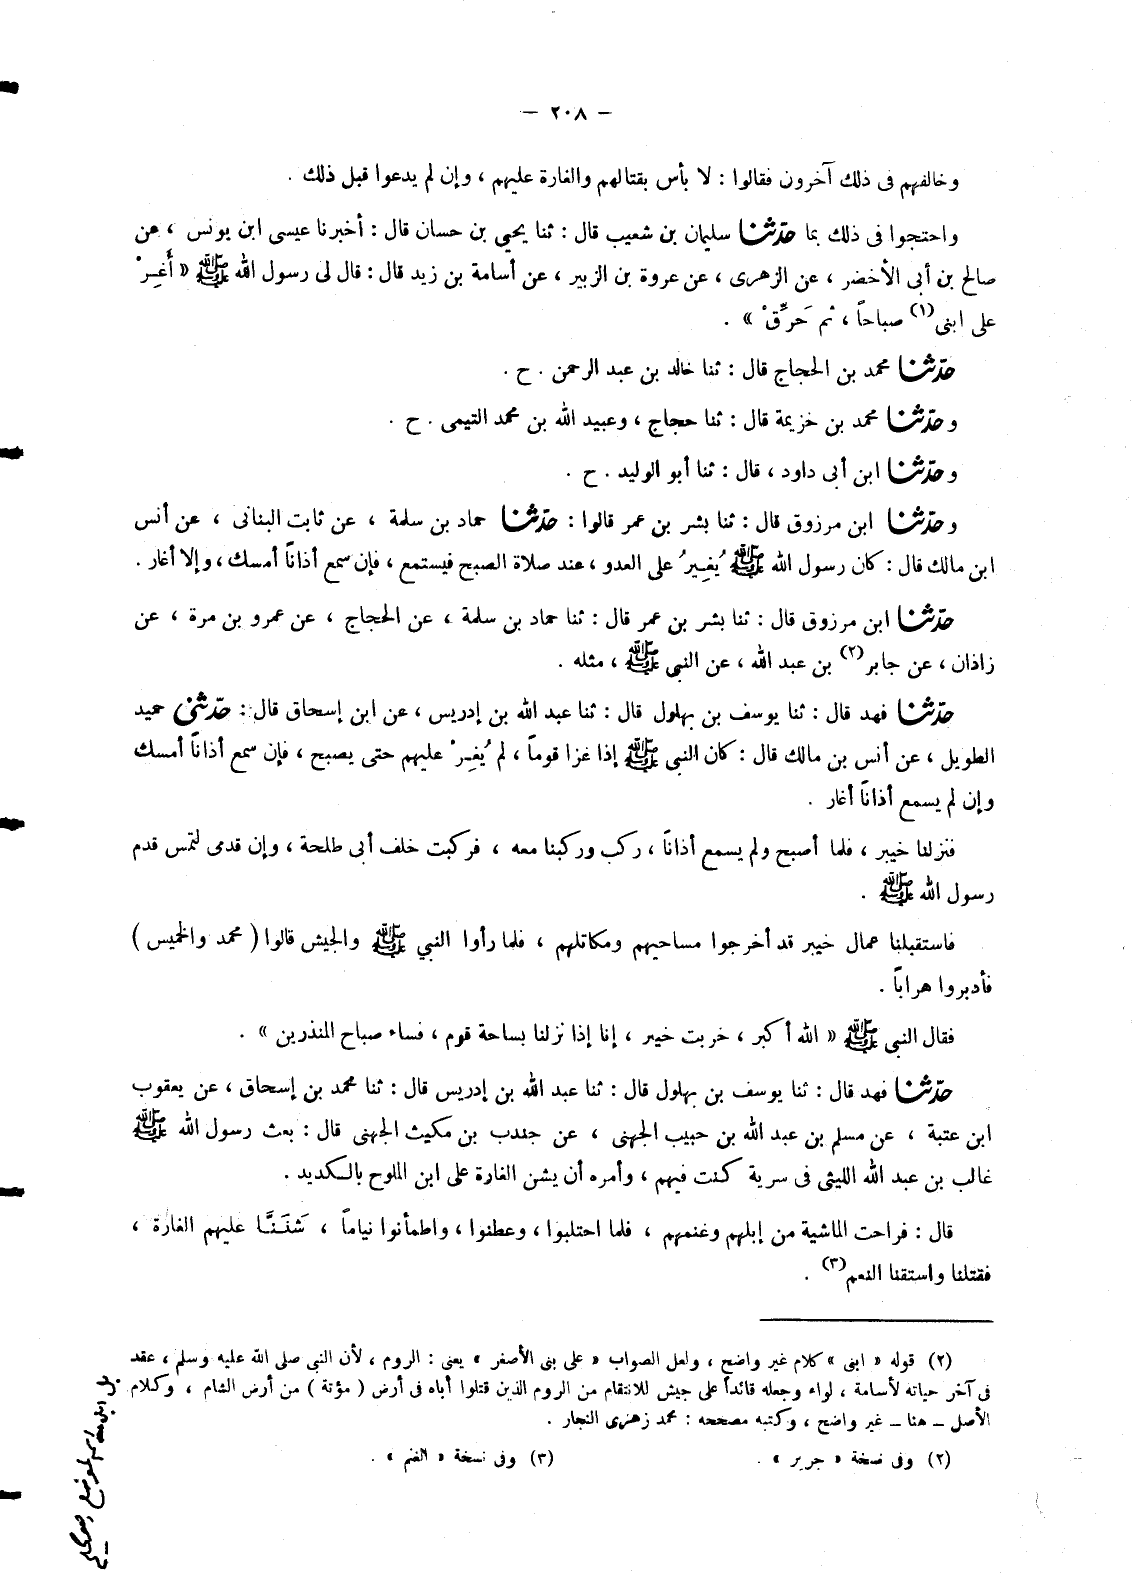 — ٢٠٨ —
وخالفهم فى ذلك آخرون فقالوا : لا بأس بقتالهم والغارة عليهم ، وإن لم يدعوا قبل ذلك .
واحتجوا فى ذلك بما حدّثنا سليمان بن شعيب قال : ثنا يحيى بن حسان قال : أخبرنا عيسى ابن يونس ، عن
صالح بن أبى الأخضر ، عن الزهرى ، عن عروة بن الزبير ، عن أسامة بن زيد قال : قال لى رسول الله ﷺ « أَغِرْ
على ابنى(١) صباحاً ، ثم حَرِّقْ » .
حدّثنا محمد بن الحجاج قال : ثنا خالد بن عبد الرحمن . ح .
وحدّثنا محمد بن خزيمة قال : ثنا حجاج ، وعبيد الله بن محمد التيمى . ح .
وحدّثنا ابن أبى داود ، قال : ثنا أبو الوليد . ح .
وحدّثنا ابن مرزوق قال : ثنا بشر بن عمر قالوا : حدّثنا حماد بن سلمة ، عن ثابت البنانى ، عن أنس
ابن مالك قال : كان رسول الله ﷺ يُغِيرُ على العدو ، عند صلاة الصبح فيستمع ، فإن سمع أذاناً أمسك ، وإلا أغار .
حدّثنا ابن مرزوق قال : ثنا بشر بن عمر قال : ثنا حماد بن سلمة ، عن الحجاج ، عن عمرو بن مرة ، عن
زاذان ، عن جابر(٢) بن عبد الله ، عن النبي ﷺ ، مثله .
حدّثنا فهد قال : ثنا يوسف بن بهلول قال : ثنا عبد الله بن إدريس ، عن ابن إسحاق قال : حدّثنى حميد
الطويل ، عن أنس بن مالك قال : كان النبي ﷺ إذا غزا قوماً ، لم يُغِرْ عليهم حتى يصبح ، فإن سمع أذاناً أمسك
وإن لم يسمع أذاناً أغار .
فنزلنا خيبر ، فلما أصبح ولم يسمع أذاناً ، ركب وركبنا معه ، فركبت خلف أبى طلحة ، وإن قدمى لتمس قدم
رسول الله ﷺ .
فاستقبلنا عمال خيبر قد أخرجوا مساحيهم ومكاتلهم ، فلما رأوا النبي ﷺ والجيش قالوا ( محمد والخميس )
فأدبروا هراباً .
فقال النبى ﷺ « الله أكبر ، خربت خيبر ، إنا إذا نزلنا بساحة قوم ، فساء صباح المنذرين » .
حدّثنا فهد قال : ثنا يوسف بن بهلول قال : ثنا عبد الله بن إدريس قال : ثنا محمد بن إسحاق ، عن يعقوب
ابن عتبة ، عن مسلم بن عبد الله بن حبيب الجهنى ، عن جندب بن مكيث الجهنى قال : بعث رسول الله ﷺ
غالب بن عبد الله الليثى فى سرية كنت فيهم ، وأمره أن يشن الغارة على ابن الملوح بالكديد .
قال : فراحت الماشية من إبلهم وغنمهم ، فلما احتلبوا ، وعطنوا ، واطمأنوا نياماً ، شَنَنَّا عليهم الغارة ،
فقتلنا واستقنا النعم(٣) .
(٢) قوله « ابنى » كلام غير واضح ، ولعل الصواب « على بنى الأصفر » يعنى : الروم ، لأن النبى صلى الله عليه وسلم ، عقد
فى آخر حياته لأسامة ، لواء وجعله قائداً على جيش للانتقام من الروم الذين قتلوا أباه فى أرض ( مؤتة ) من أرض الشام ، وكلام
الأصل ــ هنا ــ غير واضح ، وكتبه مصححه : محمد زهرى النجار .
(٢) وفى نسخة « جرير » .
(٣) وفى نسخة « الغنم » .
بل ابنى اسم لموضع